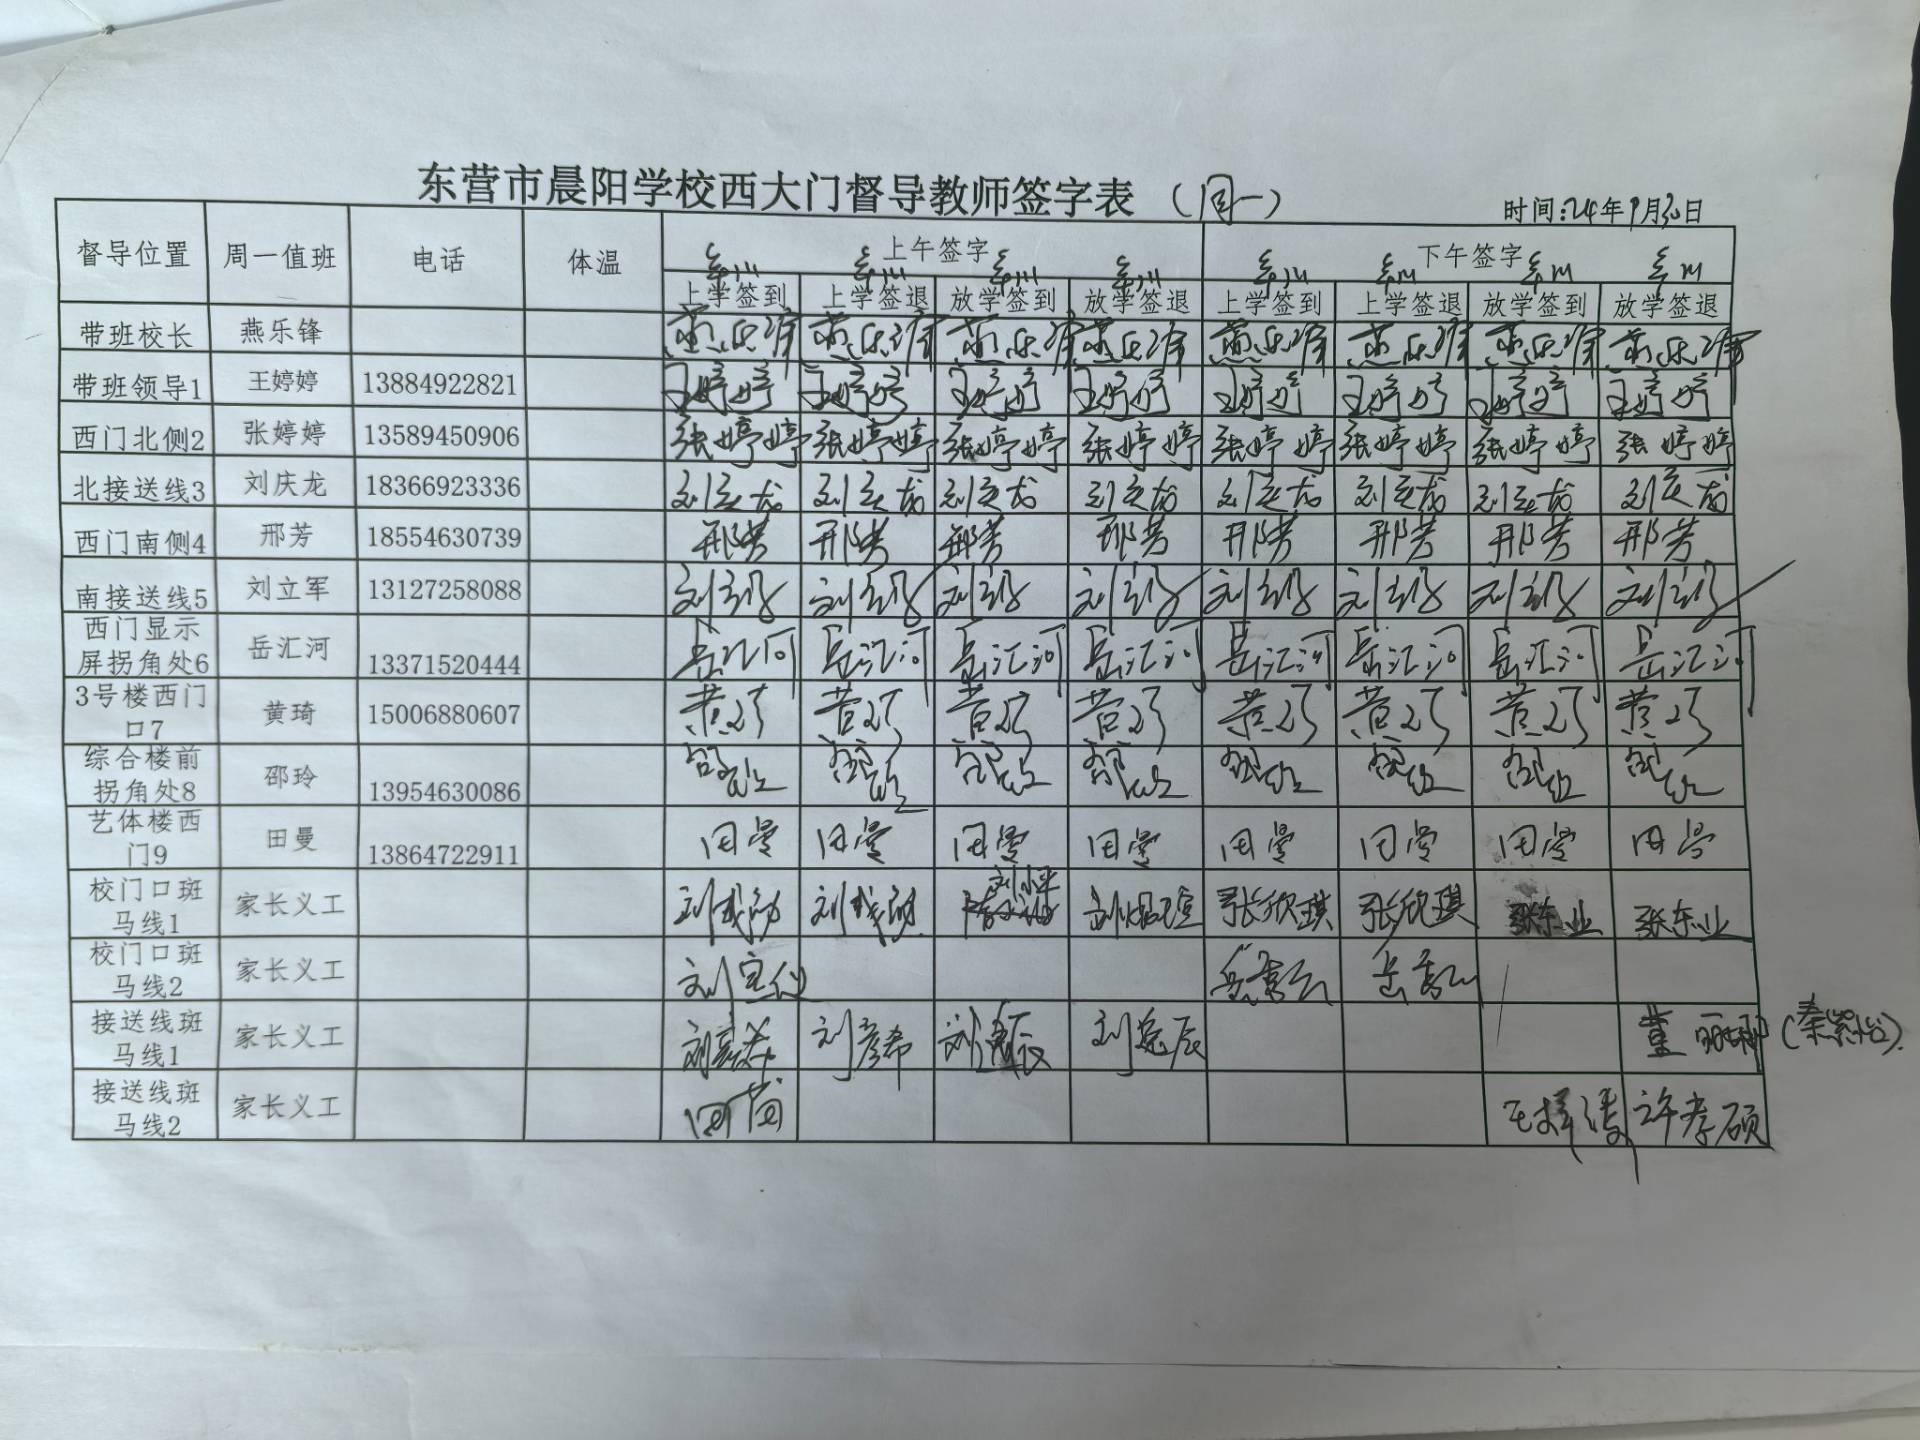 东营市晨阳学校西大门督导教师签字表 (周一)
时间:24年9月30日
督导位置 周一值班 电话 体温 上午签字 下午签字
上学签到 上学签退 放学签到 放学签退 上学签到 上学签退 放学签到 放学签退
带班校长 燕乐锋 燕乐锋 燕乐锋 燕乐锋 燕乐锋 燕乐锋 燕乐锋 燕乐锋 燕乐锋
带班领导1 王婷婷 13884922821 王婷婷 王婷婷 王婷婷 王婷婷 王婷婷 王婷婷 王婷婷 王婷婷
西门北侧2 张婷婷 13589450906 张婷婷 张婷婷 张婷婷 张婷婷 张婷婷 张婷婷 张婷婷 张婷婷
北接送线3 刘庆龙 18366923336 刘庆龙 刘庆龙 刘庆龙 刘庆龙 刘庆龙 刘庆龙 刘庆龙 刘庆龙
西门南侧4 邢芳 18554630739 邢芳 邢芳 邢芳 邢芳 邢芳 邢芳 邢芳 邢芳
南接送线5 刘立军 13127258088 刘立军 刘立军 刘立军 刘立军 刘立军 刘立军 刘立军 刘立军
西门显示
屏拐角处6 岳汇河 13371520444 岳汇河 岳汇河 岳汇河 岳汇河 岳汇河 岳汇河 岳汇河 岳汇河
3号楼西门
口7 黄琦 15006880607 黄琦 黄琦 黄琦 黄琦 黄琦 黄琦 黄琦 黄琦
综合楼前
拐角处8 邵玲 13954630086 邵玲 邵玲 邵玲 邵玲 邵玲 邵玲 邵玲 邵玲
艺体楼西
门9 田曼 13864722911 田曼 田曼 田曼 田曼 田曼 田曼 田曼 田曼
校门口班
马线1 家长义工 张欣琪 张欣琪 张东业 张东业
校门口班
马线2 家长义工
接送线班
马线1 家长义工 刘彦希
接送线班
马线2 家长义工 许孝硕